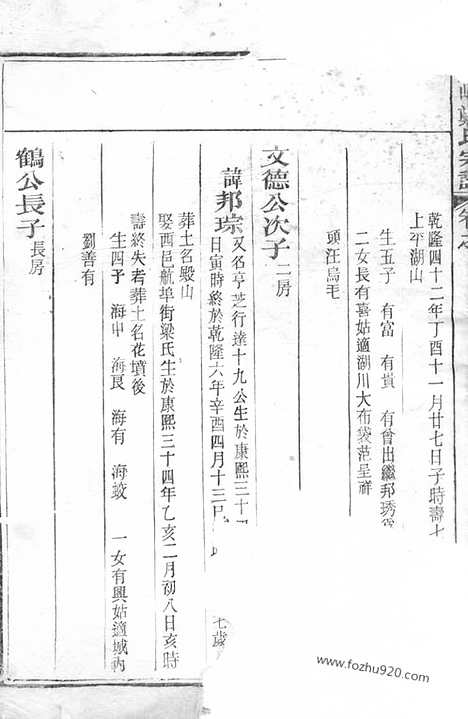 鄭氏宗譜 卷之
乾隆四十二年丁酉十一月廿七日子時壽七
上平湖山
生五子 有富 有貴 有曾出繼邦琇爲
二女長有喜姑適湖川大布袋范呈祥
頭汪烏毛
文德公次子 二房
諱邦琮 又名亨芝行達十九公生於康熙三十
日寅時終於乾隆六年辛酉四月十三日 七歲
葬土名殿山
娶西邑航埠街梁氏生於康熙三十四年乙亥二月初八日亥時
壽終失考葬土名花墳後
生四子 海申 海艮 海有 海蛟 一女有興姑適城內
劉善有
鶴公長子 長房
www.fozhu920.com